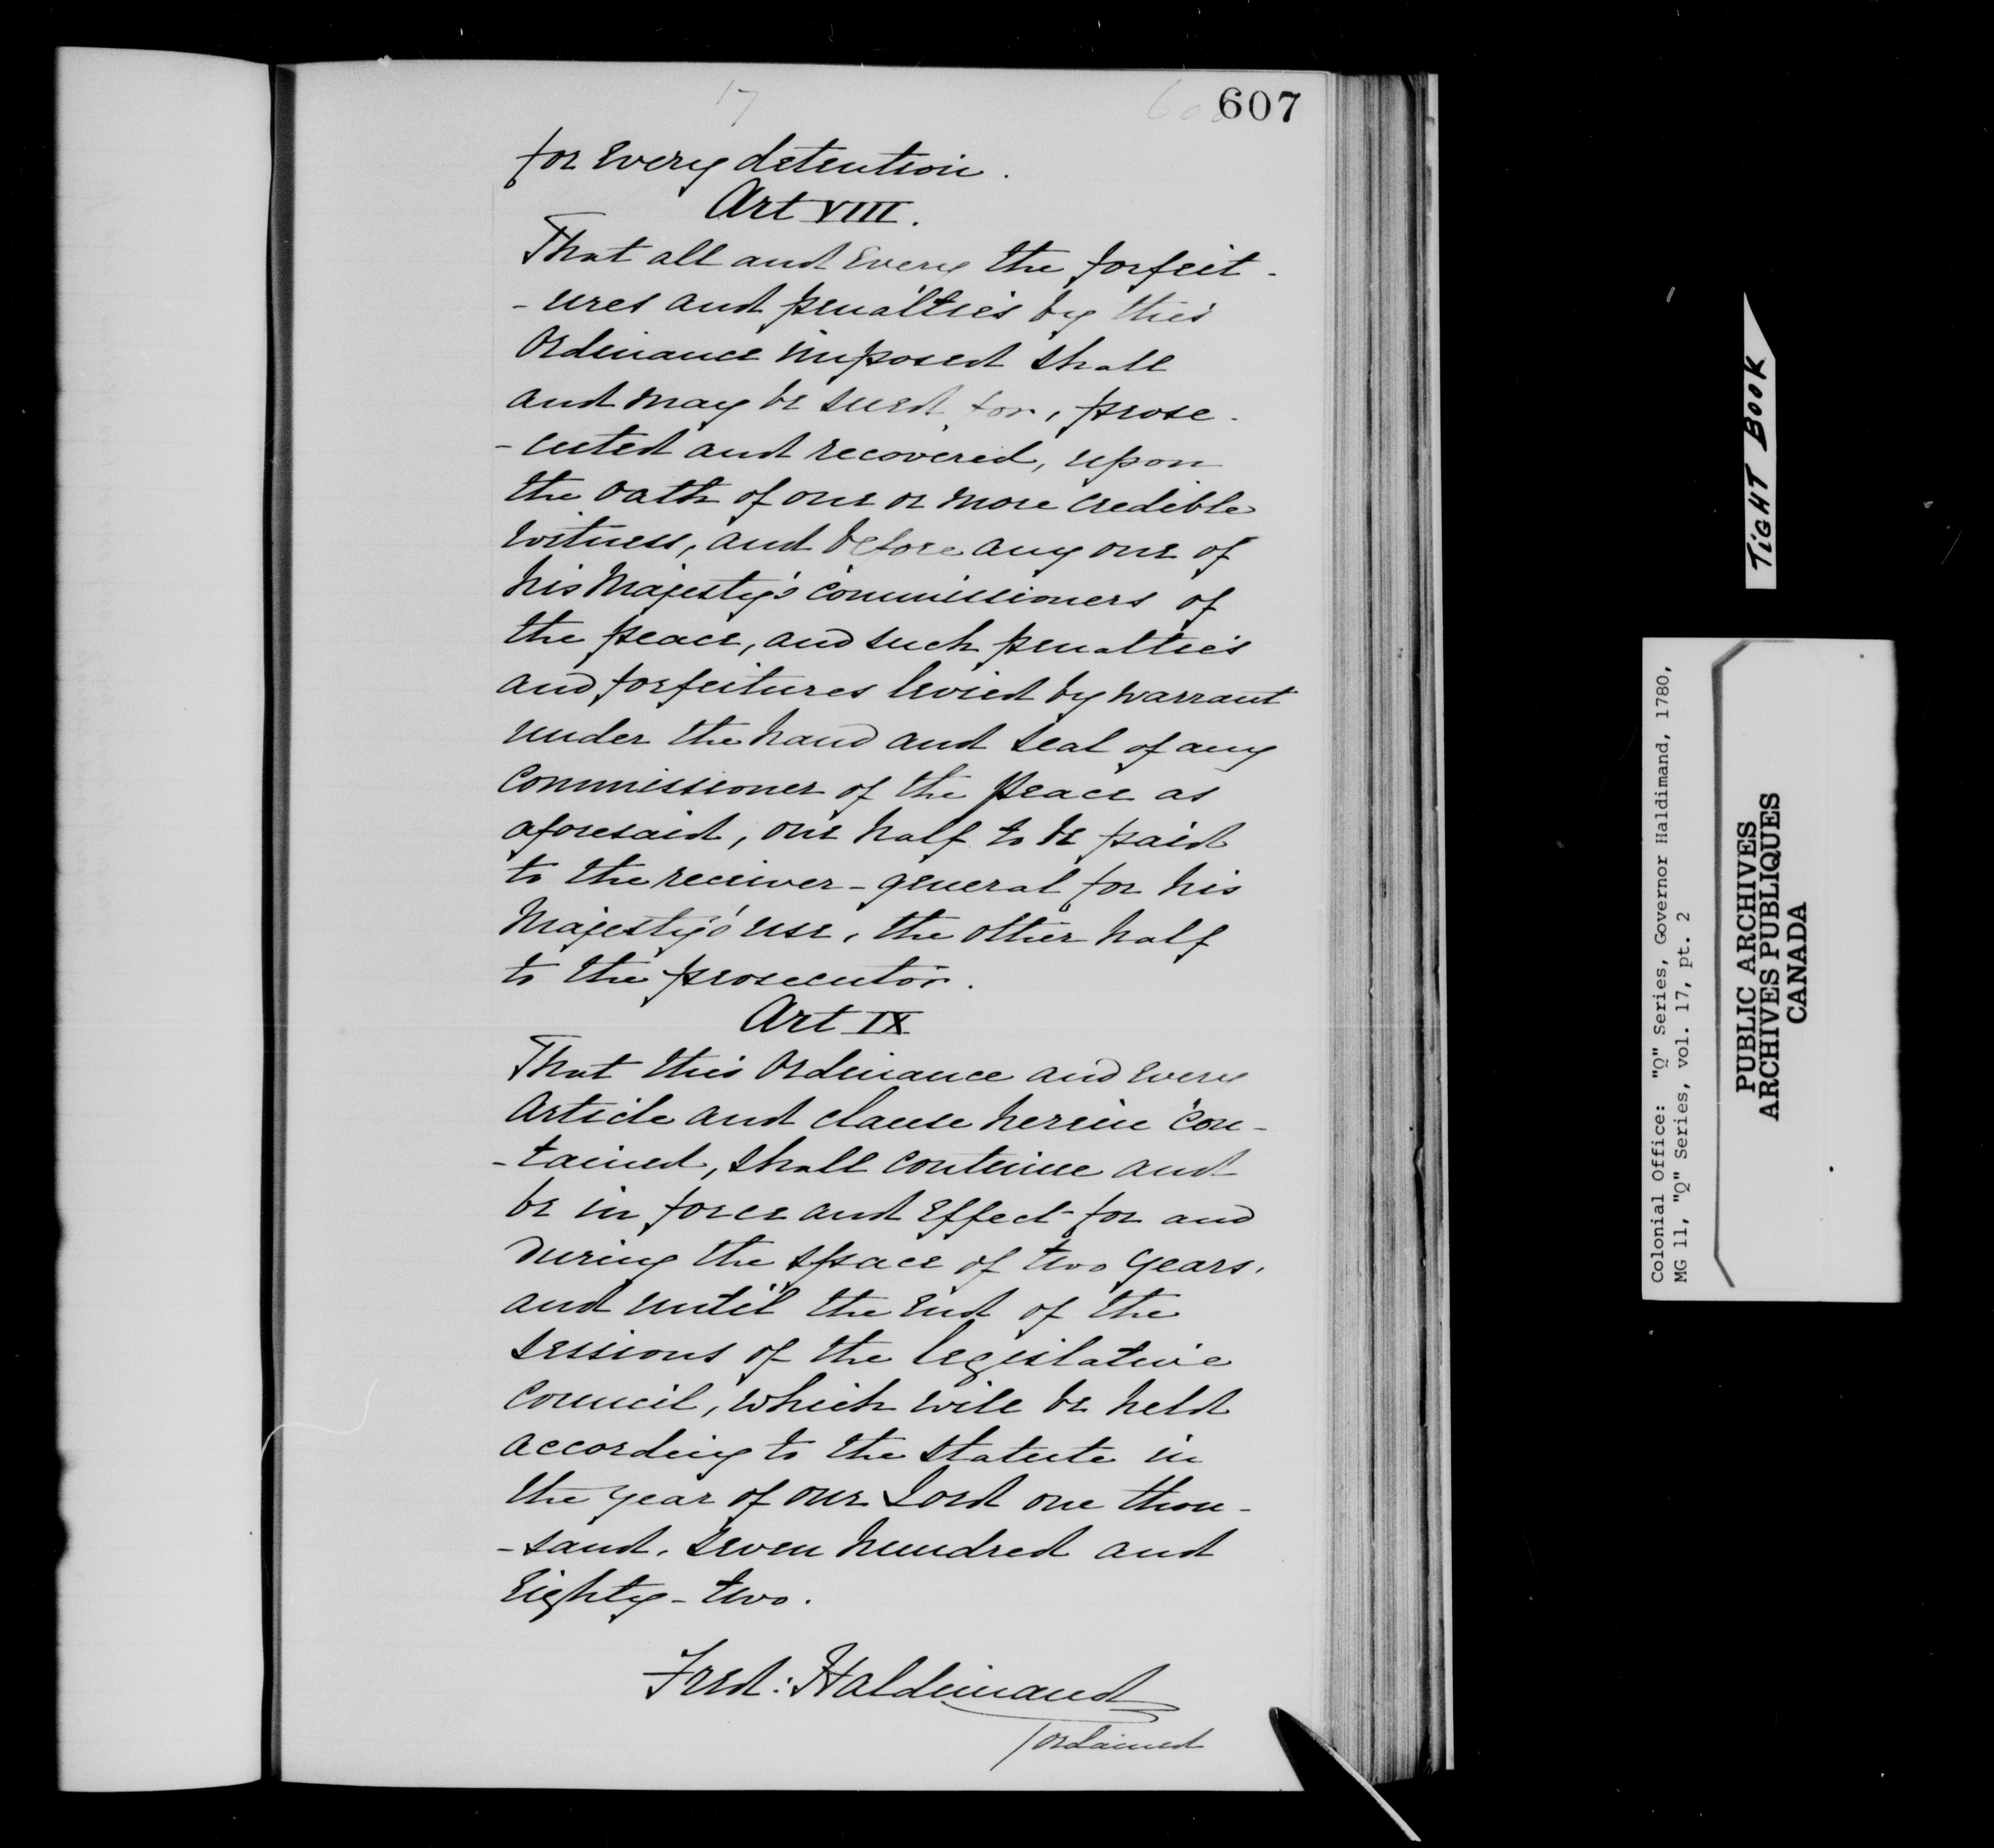 17
607
for every detention.
Art VIII.
That all and every the forfeit-
-ures and penalties by this
Ordinance imposed shall
and may be sued for, prose-
-cuted and recovered, upon
the oath of one or more credible
witness, and before any one of
his Majesty's commissioners of
the peace, and such penalties
and forfeitures levied by warrant
under the hand and seal of any
Commissioner of the peace as
aforesaid, one half to be paid
to the receiver-general for his
Majesty's use, the other half
to the prosecutor.
Art IX
That this Ordinance and every
Article and clause herein con-
-tained, shall continue and
be in force and effect for and
during the space of two years,
and until the end of the
sessions of the legislative
Council, which will be held
according to the statute in
the year of our Lord one thou-
-sand, seven hundred and
Eighty-two.
Fred: Haldimand
/ordained
TiGHT BOOK
Colonial Office: "Q" Series, Governor Haldimand, 1780,
MG 11, "Q" Series, vol. 17, pt. 2
PUBLIC ARCHIVES
ARCHIVES PUBLIQUES
CANADA